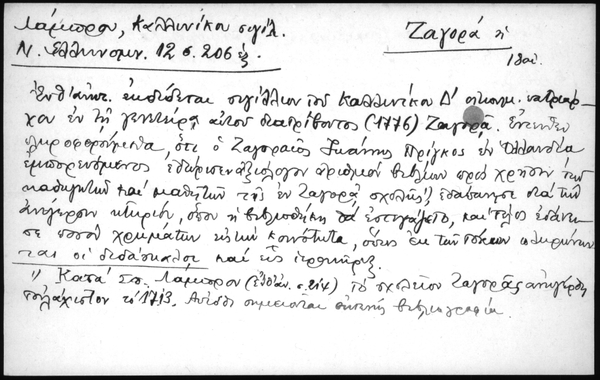 Λάμπρου, Καλλινίκου σιγίλ.
Ν. Ἑλληνομν. 12 σ. 206 ἑξ.
Ζαγορά ἡ
18 αἰ.
Ἐνθ' ἀνωτ. ἐκδίδεται σιγίλλιον τοῦ Καλλινίκου Δ' οἰκουμ. πατριάρ-
χου ἐν τῇ γενετείρᾳ αὐτοῦ διατρίβοντος (1776) Ζαγορᾷ. Ἐντεῦθεν
πληροφορούμεθα, ὅτι ὁ Ζαγοραῖος Ἰωάννης Πρίγκος ἐν Ὁλλανδίᾳ
ἐμπορευόμενος ἐδωρήσατο ἀξιόλογον ἀριθμὸν βιβλίων πρὸς χρῆσιν τῶν
καθηγητῶν καὶ μαθητῶν τῆς ἐν Ζαγορᾷ σχολῆς¹⁾, ἐδαπάνησε διὰ τὴν
ἀνέγερσιν κτιρίου, ὅπου ἡ βιβλιοθήκη θὰ ἐστεγάζετο, καὶ τέλος ἐδάνει-
σε ποσὸν χρημάτων εἰς τὴν κοινότητα, ὅπως ἐκ τῶν τόκων πληρώνων-
ται οἱ διδάσκαλοι καὶ εἷς ἱεροκῆρυξ.
1) Κατὰ Σπ. Λάμπρον (ἔνθ' ἀν. σ. 214) τὸ σχολεῖον Ζαγορᾶς ἀνηγέρθη
τοὐλάχιστον τὸ 1713. Αὐτόθι σημειοῦται σχετικὴ βιβλιογραφία.